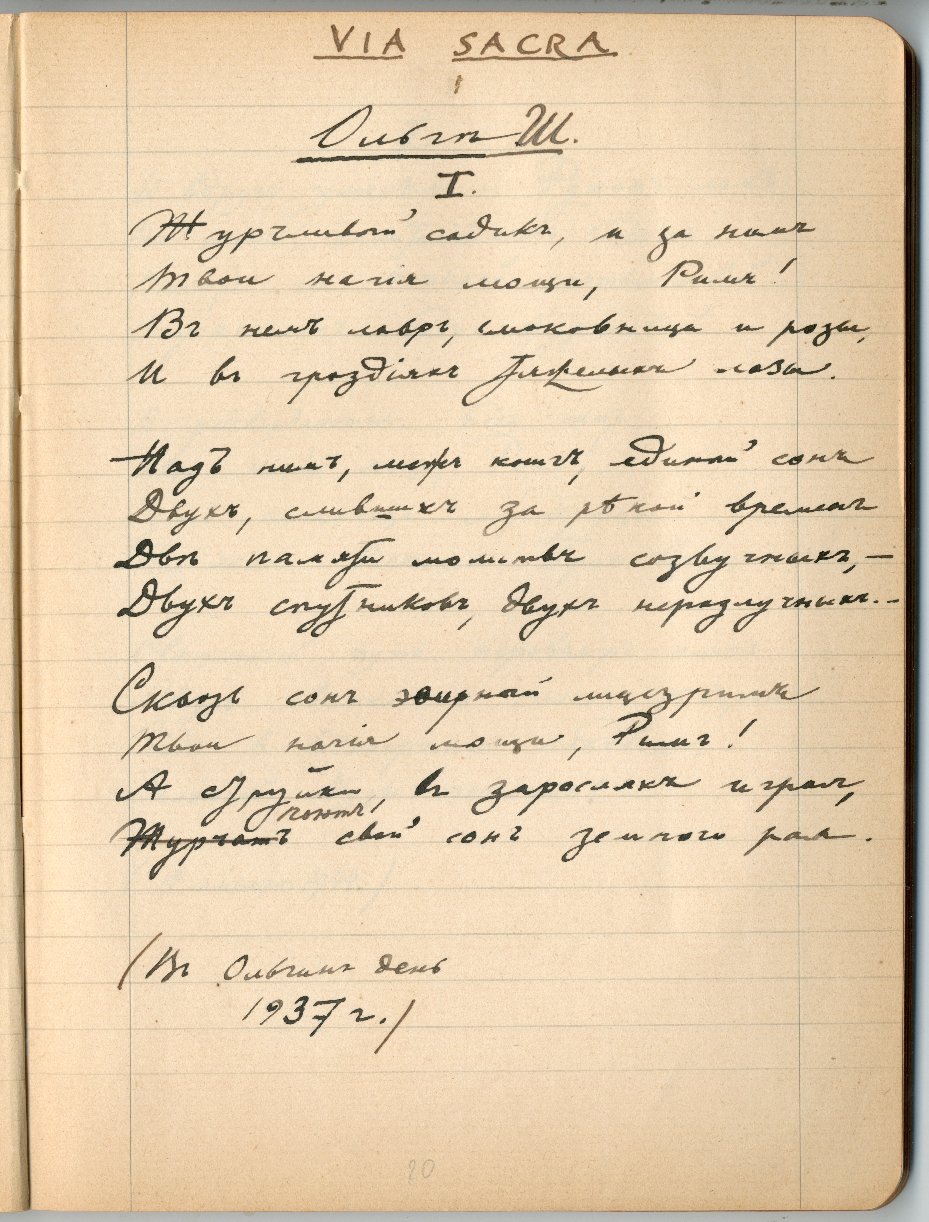 VIA SACRA
1
Ольгѣ Ш.
I.
Журчливый садикъ, и за нимъ
Твои нагія мощи, Римъ!
Въ немъ лавръ, смоковница и розы,
И въ гроздіяхъ тяжелыхъ лозы.
Надъ нимъ, межъ книгъ, единый сонъ
Двухъ, слившихъ за рѣкой временъ
Двѣ памяти молитвъ созвучныхъ, —
Двухъ спутниковъ, двухъ неразлучныхъ..
Сквозь сонъ эѳирный лицезримъ
Твои нагія мощи, Римъ!
А струйки, въ заросляхъ играя,
поютъ
Журчатъ свой сонъ земного рая.
(Въ Ольгинъ день
1937 г.)
20